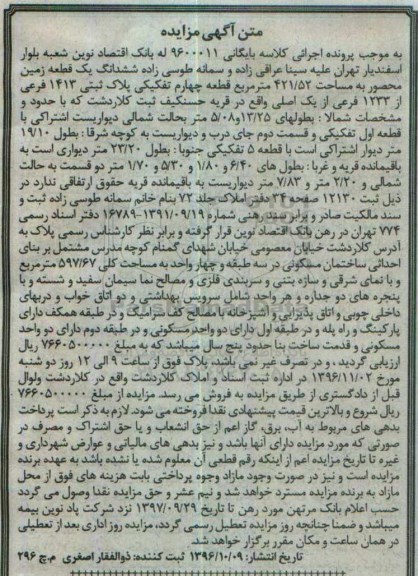 متن آگهی مزایده
به موجب پرونده اجرائی کلاسه بایگانی ۹۶۰۰۰۱۱ له بانک اقتصاد نوین شعبه بلوار
اسفندیار تهران علیه سینا عراقی زاده و سمانه طوسی زاده ششدانگ یک قطعه زمین
محصور به مساحت ۴۲۱/۵۲ مترمربع قطعه چهارم تفکیکی پلاک ثبتی ۱۴۱۳ فرعی
از ۱۲۳۳ فرعی از یک اصلی واقع در قریه حسنکیف ثبت کلاردشت که با حدود و
مشخصات شمالا : بطولهای ۱۳/۲۵و۵/۰۸ متر بحالت شمالی دیواریست اشتراکی با
قطعه اول تفکیکی و قسمت دوم جای درب و دیواریست به کوچه شرقا : بطول ۱۹/۱۰
متر دیوار اشتراکی است با قطعه ۵ تفکیکی جنوبا : بطول ۲۳/۲۰ متر دیواری است به
باقیمانده قریه و غربا : بطول های ۶/۴۰ و ۱/۸۰ و ۵/۳۰ و ۱/۷۰ متر دو قسمت به حالت
شمالی و ۲/۲۰ متر و ۷/۸۳ متر دیواریست به باقیمانده قریه حقوق ارتفاقی ندارد در
ذیل ثبت ۱۲۱۳۰ صفحه ۳۴ دفتر املاک جلد ۷۲ بنام خانم سمانه طوسی زاده ثبت و
سند مالکیت صادر و برابر سند رهنی شماره ۱۶۷۸۹-۱۳۹۱/۰۹/۱۹ دفتر اسناد رسمی
۷۷۴ تهران در رهن بانک اقتصاد نوین قرار گرفته و برابر نظر کارشناس رسمی پلاک به
آدرس کلاردشت خیابان معصومی خیابان شهدای گمنام کوچه مدرس مشتمل بر بنای
احداثی ساختمان مسکونی در سه طبقه و چهار واحد به مساحت کلی ۵۹۷/۶۷ مترمربع
و با نمای شرقی و سازه بتنی و سربندی فلزی و مصالح نما سیمان سفید و شسته و با
پنجره های دو جداره و هر واحد شامل سرویس بهداشتی و دو اتاق خواب و دربهای
داخلی چوبی و اتاق پذیرایی و آشپزخانه با مصالح کف سرامیک و در طبقه همکف دارای
پارکینگ و راه پله و در طبقه اول دارای دو واحد مسکونی و در طبقه دوم دارای دو واحد
مسکونی و قدمت ساخت بنا حدود پنج سال میباشد که به مبلغ ۷۶۶۰۵۰۰۰۰۰ ریال
ارزیابی گردید ، و در تصرف غیر نمی باشد، پلاک فوق از ساعت ۹ الی ۱۲ روز دو شنبه
مورخ ۱۳۹۶/۱۱/۰۲ در اداره ثبت اسناد و املاک کلاردشت واقع در کلاردشت ولوال
قبل از دادگستری از طریق مزایده به فروش می رسد. مزایده از مبلغ ۷۶۶۰۵۰۰۰۰۰
ریال شروع و بالاترین قیمت پیشنهادی نقدا فروخته می شود. لازم به ذکر است پرداخت
بدهی های مربوط به آب، برق، گاز اعم از حق انشعاب و یا حق اشتراک و مصرف در
صورتی که مورد مزایده دارای آنها باشد و نیز بدهی های مالیاتی و عوارض شهرداری و
غیره تا تاریخ مزایده اعم از اینکه رقم قطعی آن معلوم شده یا نشده باشد به عهده برنده
مزایده است و نیز در صورت وجود مازاد وجوه پرداختی بابت هزینه های فوق از محل
مازاد به برنده مزایده مسترد خواهد شد و نیم عشر و حق مزایده نقدا وصول می گردد
حسب اعلام بانک مرتهن مورد رهن تا تاریخ ۱۳۹۷/۰۹/۲۹ نزد شرکت پاد نوین بیمه
میباشد و ضمنا چنانچه روز مزایده تعطیل رسمی گردد، مزایده روز اداری بعد از تعطیلی
در همان ساعت و مکان مقرر برگزار خواهد شد.
تاریخ انتشار: ۱۳۹۶/۱۰/۰۹ ثبت کننده: ذوالفقار اصغری م.چ ۲۹۶